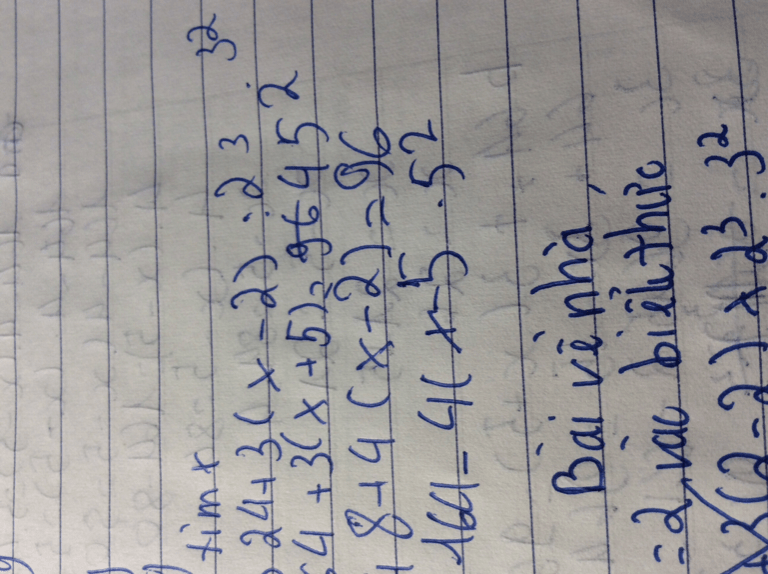 tìm x
24+3(x-2) : 2³ . 3²
4+3(x+5) = 96 45²
8+4(x-2) = 96
164-4(x-5 . 5²
Bài về nhà
=2 vào biểu thức
3(2-2) x 2³ . 3²